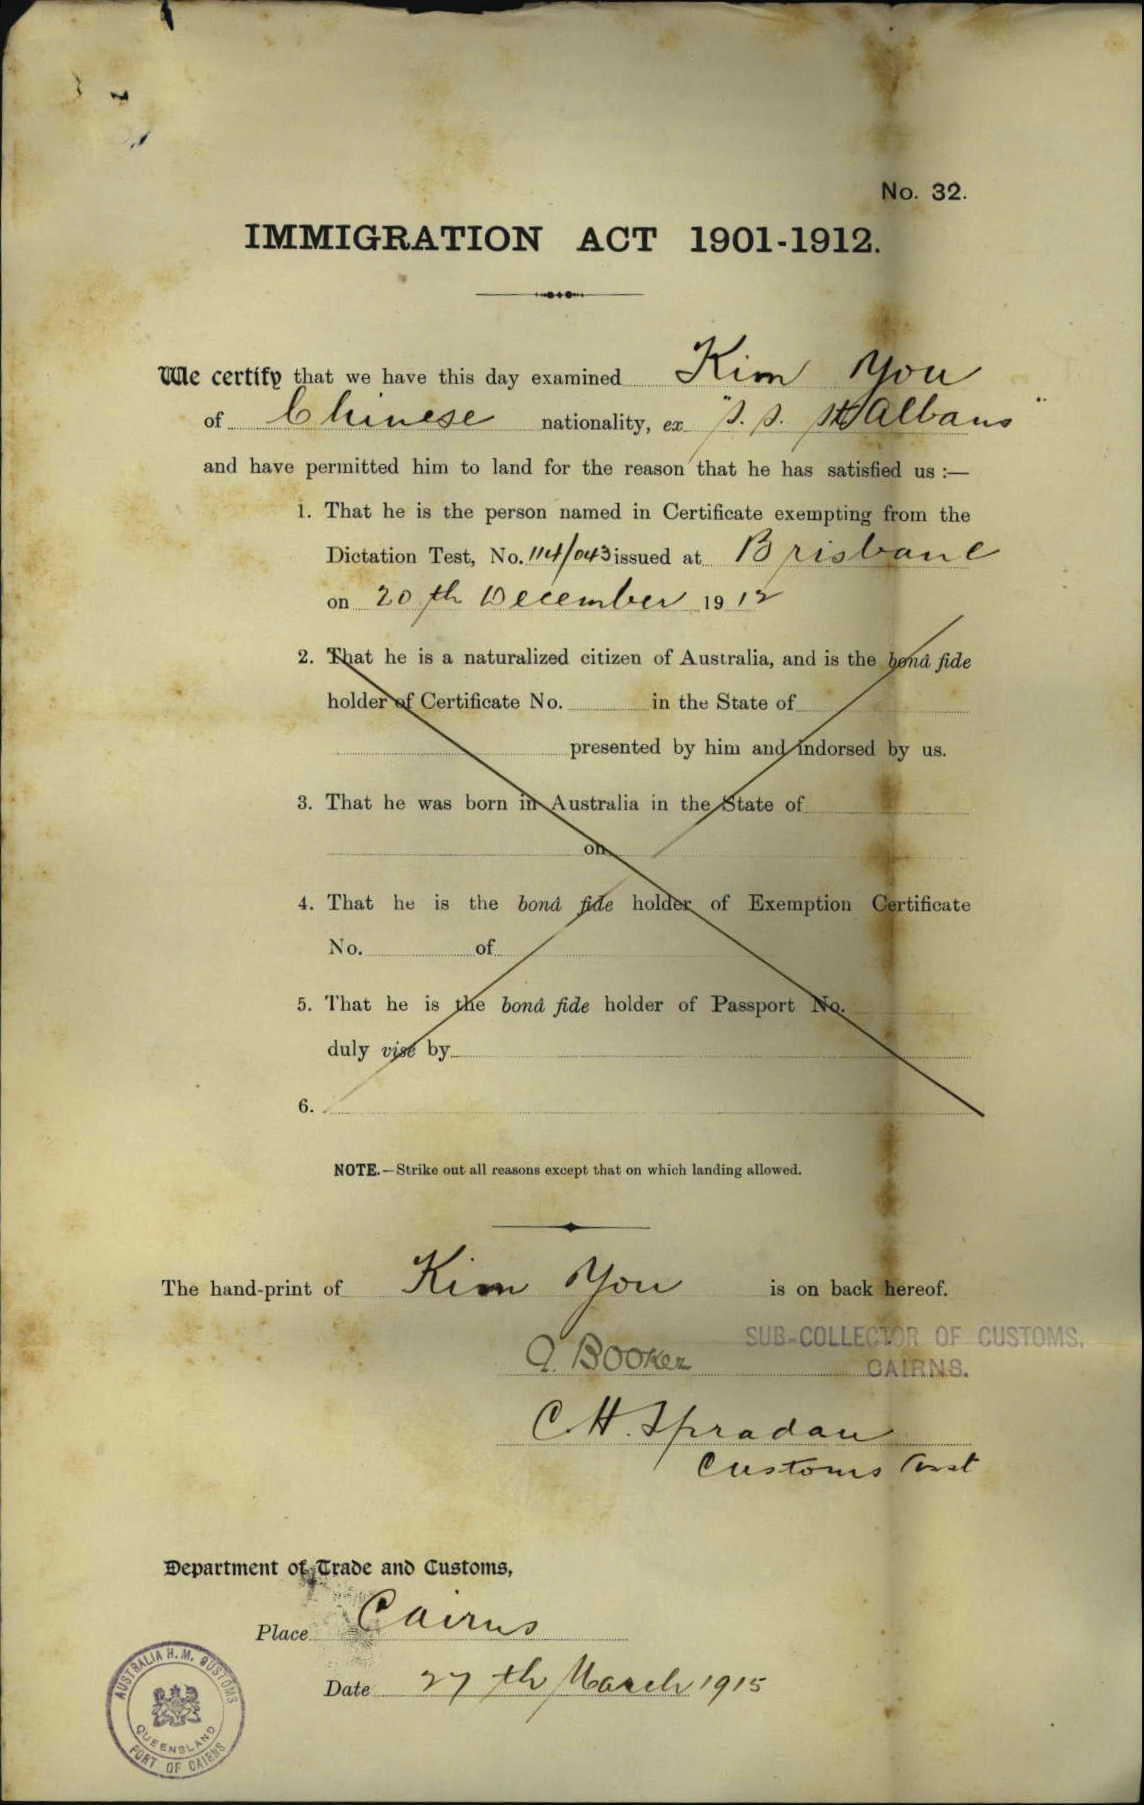 No. 32.
IMMIGRATION ACT 1901-1912.
We certify that we have this day examined Kim You
of Chinese nationality, ex "S. S. St Albans"
and have permitted him to land for the reason that he has satisfied us :—
1. That he is the person named in Certificate exempting from the
Dictation Test, No. 114/043 issued at Brisbane
on 20th December 1912
2. That he is a naturalized citizen of Australia, and is the bonâ fide
holder of Certificate No. in the State of
presented by him and indorsed by us.
3. That he was born in Australia in the State of
on
4. That he is the bonâ fide holder of Exemption Certificate
No. of
5. That he is the bonâ fide holder of Passport No.
duly visé by
6.
NOTE.—Strike out all reasons except that on which landing allowed.
The hand-print of Kim You is on back hereof.
SUB-COLLECTOR OF CUSTOMS,
Booker CAIRNS.
C. H. Spradau
Customs Asst
Department of Trade and Customs,
Place Cairns
Date 27th March 1915
AUSTRALIA H.M. CUSTOMS
QUEENSLAND
PORT OF CAIRNS